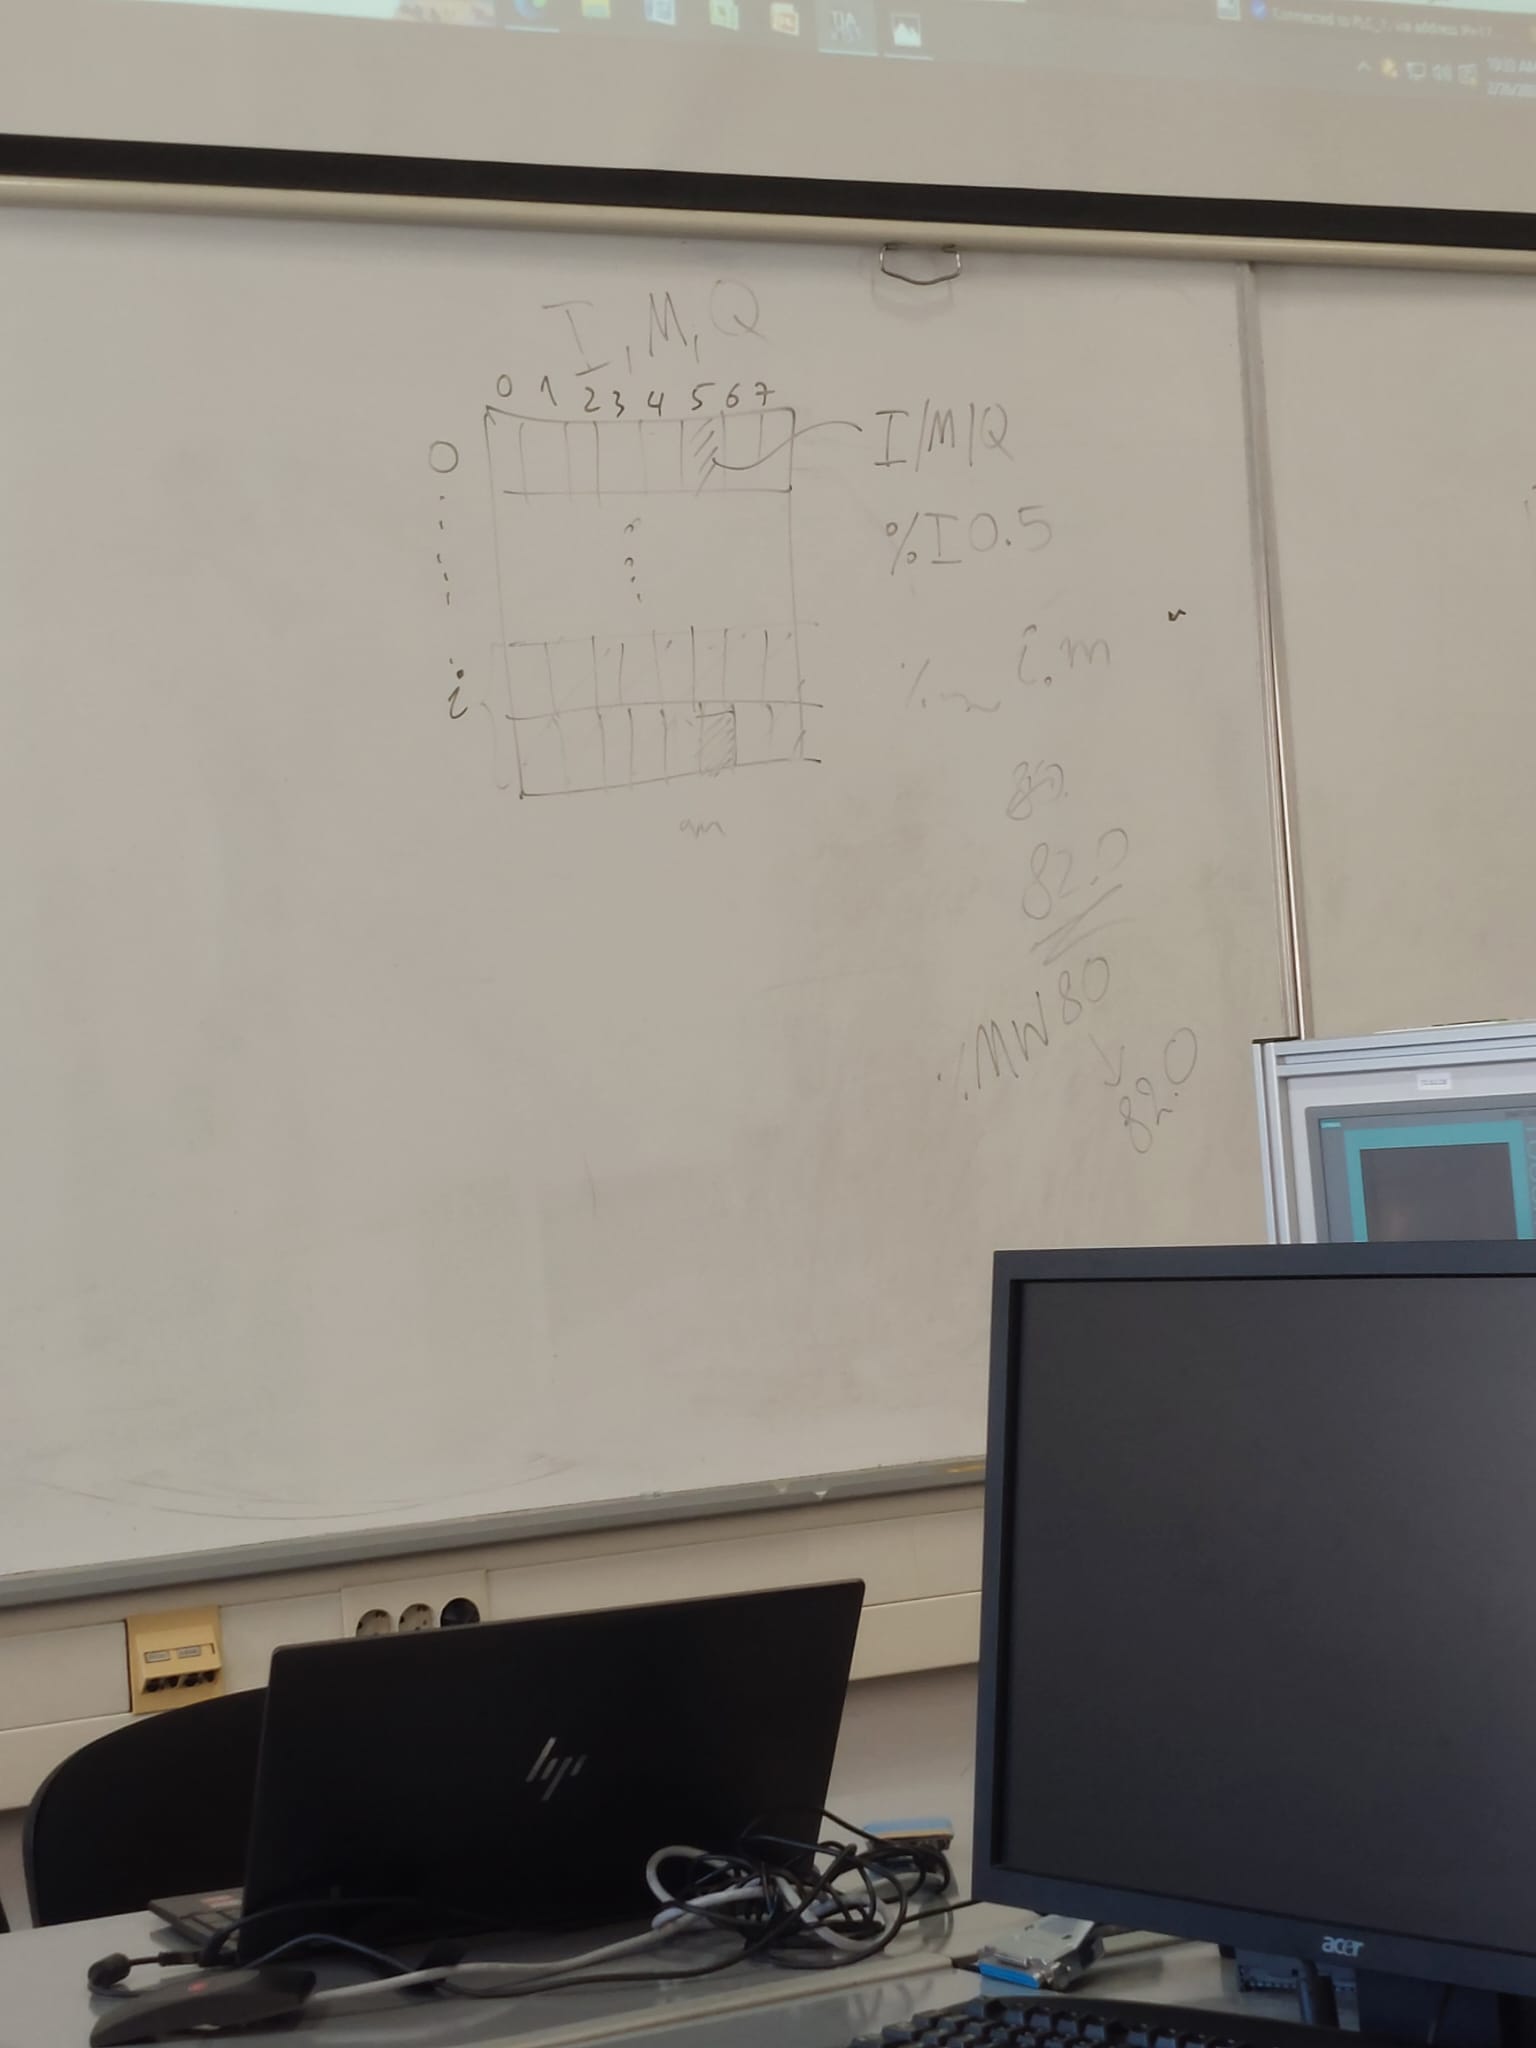 TIA
Connected to PLC_1, via address IP=17
I, M, Q
0 1 2 3 4 5 6 7
0
I/M/Q
%I0.5
i
i.m
82.0
%MW80
82.0
hp
acer